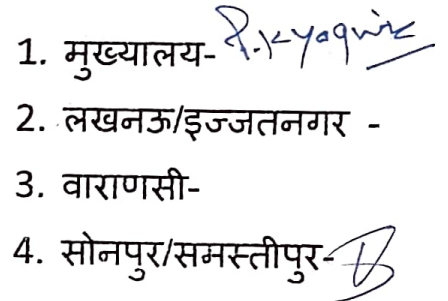 1. मुख्यालय-
2. लखनऊ/इज्जतनगर -
3. वाराणसी-
4. सोनपुर/समस्तीपुर-